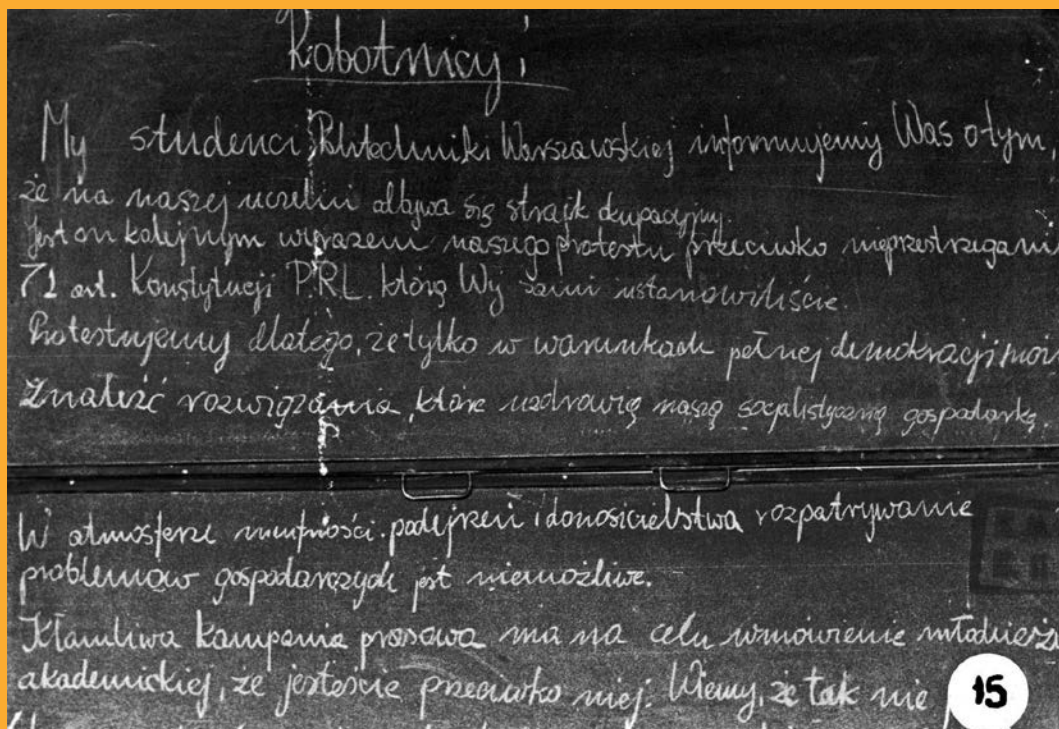 Robotnicy!
My studenci Politechniki Warszawskiej informujemy Was o tym,
że na naszej uczelni odbywa się strajk okupacyjny.
Jest on kolejnym wyrazem naszego protestu przeciwko nieprzestrzegani
71 art. Konstytucji P.R.L. którą Wy sami ustanowiliście.
Protestujemy dlatego, że tylko w warunkach pełnej demokracji moż
znaleźć rozwiązania, które uzdrowią naszą socjalistyczną gospodarkę.
W atmosferze nieufności, podejrzeń i donosicielstwa rozpatrywanie
problemów gospodarczych jest niemożliwe.
Kłamliwa kampania prasowa ma na celu wmówienie młodzieży
akademickiej, że jesteście przeciwko niej. Wiemy, że tak nie
15